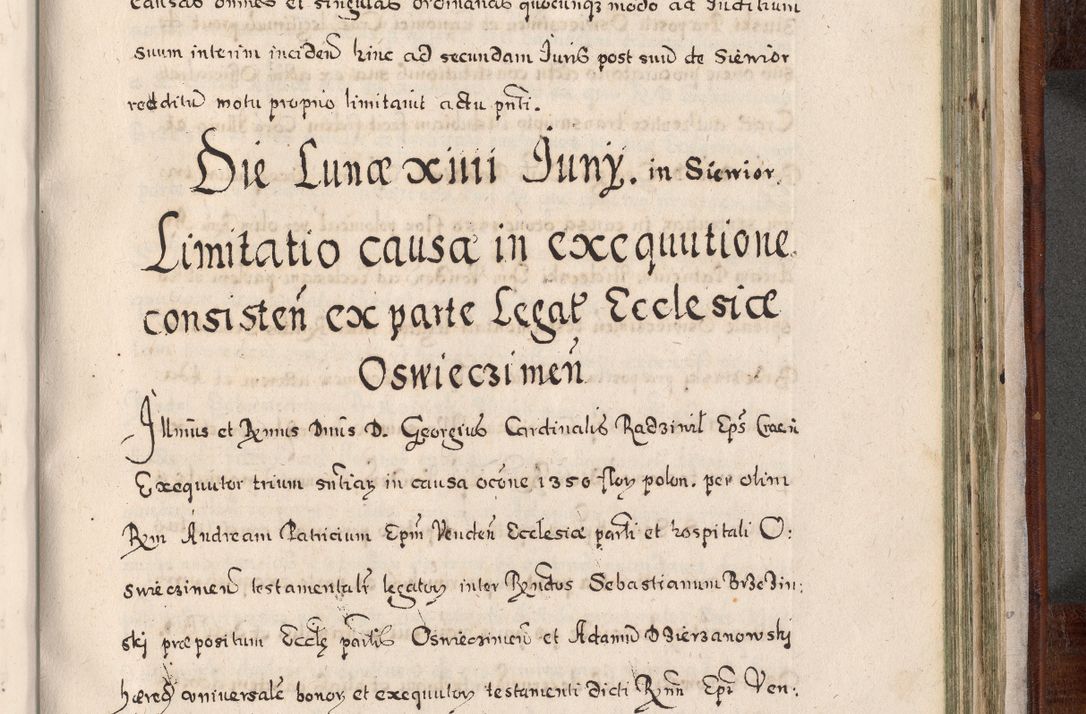 causas omnes et singulas ordinarias quocunqꝫ modo ad Iuditium
suum interim inciden̄ hinc ad secundam Juris post suū de Siewior
redditū motu proprio limitauit actu pn̄ti.
Die Lunæ xiiii Juny. in Siewior.
Limitatio causæ in exequutione
consisten̄ ex parte Legat̄ Ecclesiæ
Oswieczimen̄
Jllmūs et Rymus Dnūs D. Georgius Cardinalis Radziwił Epūs Cracn̄
Exequutor trium sn̄tiaꝝ in causa ocōne 1350 floꝝ polon. per olim
Rym Andream Patricium Epm̄ Venden̄ Ecclesiæ parr̄li et hospitali O:
swieczimen̄ testamentalr̄ legatoꝝ inter Ryndos Sebastianum Brzezin:
ski præpositum Ecclę par̄lis Oswieczimen̄ et Adamū Dzierzanowskj
hæred̄ coniuersale bonoꝝ et exequutoꝝ testamenti dicti Rynn̄ Epī Ven: